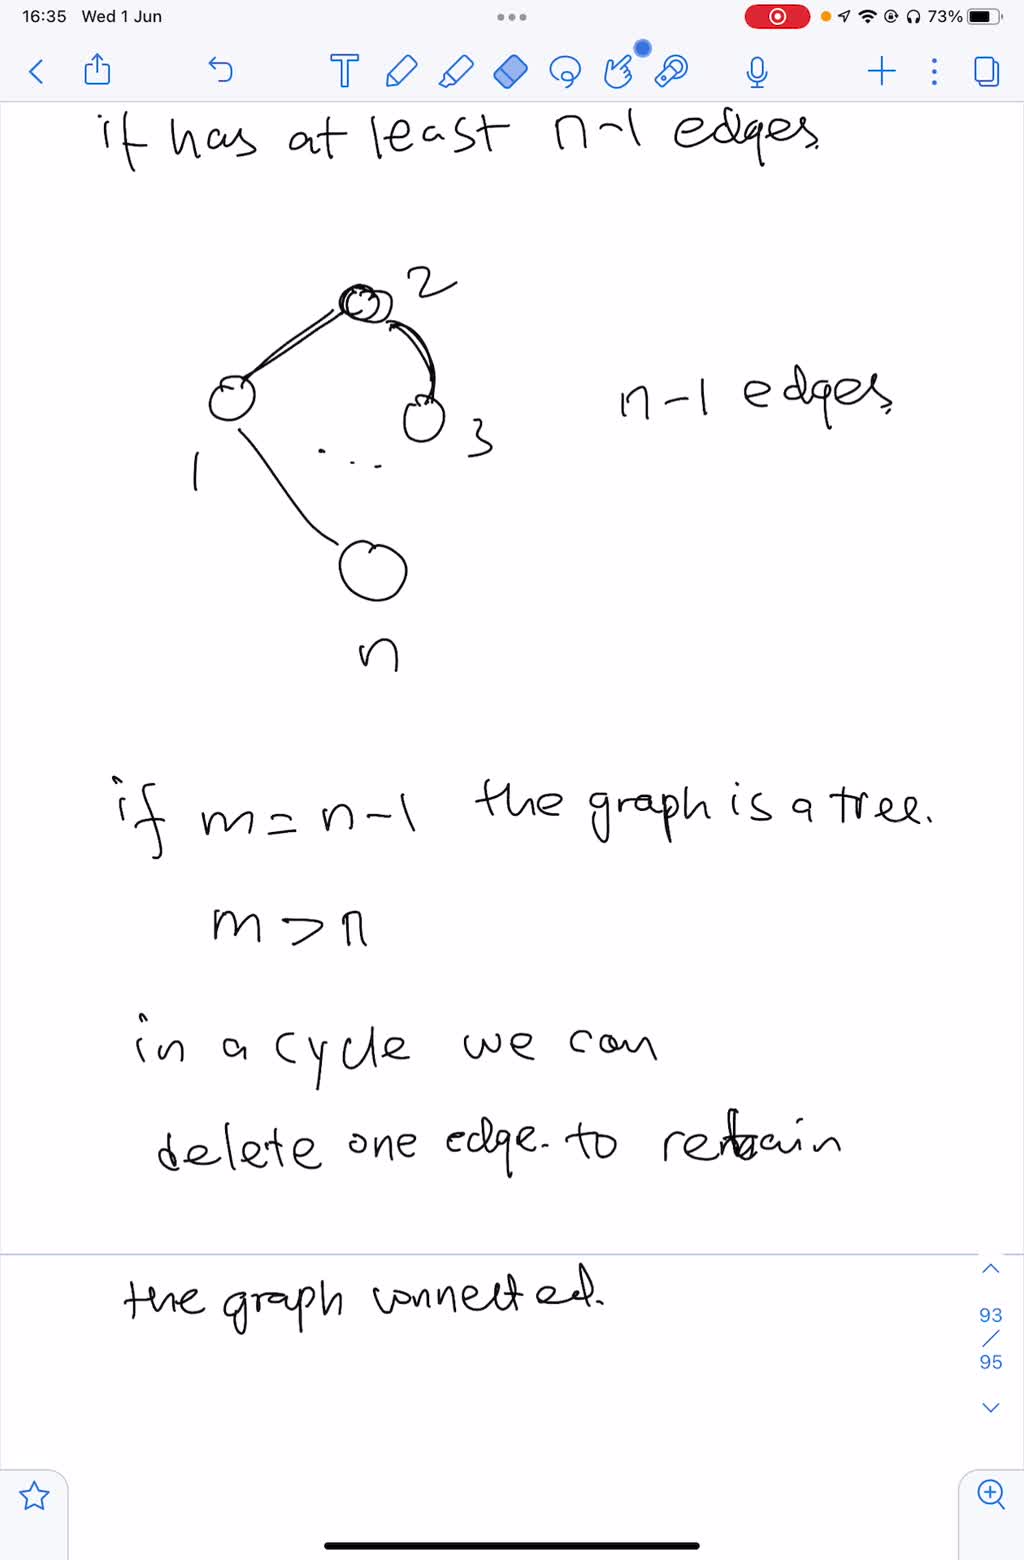 16:35 Wed 1 Jun
73%
it has at least n-1 edges.
2
1
3
...
n
n-1 edges.
if m = n-1 the graph is a tree.
m > n
in a cycle we can
delete one edge. to retain
the graph connected.
93
/
95